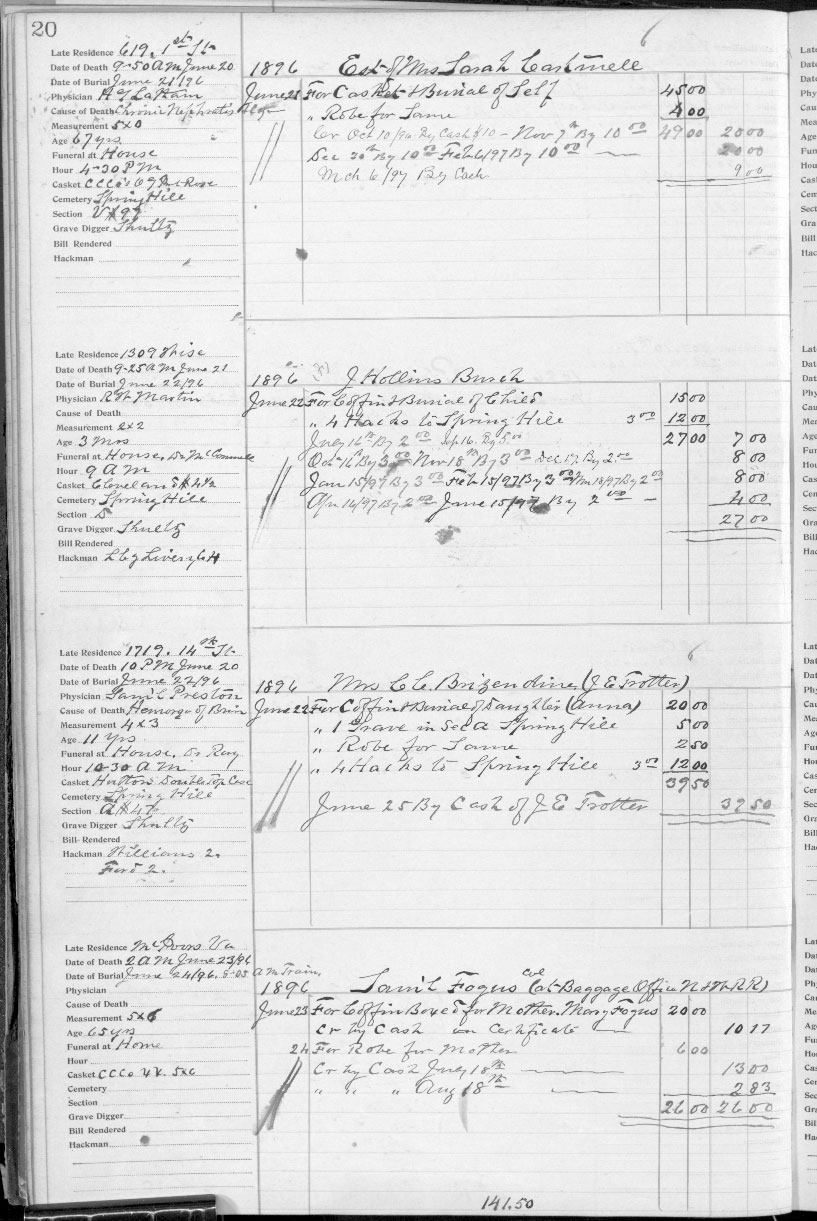 20
6
Late Residence 619. 1st St.
Date of Death 9-50 A M June 20
Date of Burial June 21/96
Physician A G Latham
Cause of Death Chronic Nephritis
Measurement 5x0
Age 67 yrs
Funeral at House
Hour 4-30 P M
Casket C C Co's
Cemetery Spring Hill
Section
Grave Digger Shultz
Bill Rendered
Hackman
1896 Est of Mrs Sarah Cashmell
June 21 For Casket & Burial of Self 45 00
" Robe for Same 4 00
Cr Oct 10/96 By Cash $10 - Nov 7th By 10 00 49 00 20 00
Dec 20th By 10 00 Feb 6/97 By 10 00 20 00
Mch 6/97 By Cash 9 00
Late Residence 1309 Wise
Date of Death 9-25 A M June 21
Date of Burial June 22/96
Physician R W Martin
Cause of Death
Measurement 2x2
Age 3 Mos
Funeral at House, Dr McConnell
Hour 9 A M
Casket Cleveland
Cemetery Spring Hill
Section 5
Grave Digger Shultz
Bill Rendered
Hackman Lbg Livery 4
1896 J Hollins Burch
June 22 For Coffin & Burial of Child 15 00
" 4 Hacks to Spring Hill 3 00 12 00
July 16th By 2 00 Sep 16. By 5 00 27 00 7 00
Oct 16th By 3 00 Nov 18th By 3 00 Dec 17. By 2 00 8 00
Jan 15/97 By 3 00 Feb 15/97 By 3 00 Mar 18/97 By 2 00 8 00
Apr 16/97 By 2 00 June 15/97 By 2 00 4 00
27 00
6
Late Residence 1719. 14th St.
Date of Death 10 P M June 20
Date of Burial June 22/96
Physician Sam'l Preston
Cause of Death Hemorage of Brain
Measurement 4x3
Age 11 yrs
Funeral at House, Dr Ray
Hour 10-30 A M
Casket Huttons Double Top Case
Cemetery Spring Hill
Section A
Grave Digger Shultz
Bill Rendered
Hackman Williams 2.
Ford 2.
1896 Mrs C C. Brizendine (J E Trotter)
June 22 For Coffin & Burial of Daughter (Anna) 20 00
" 1 Grave in Sec A Spring Hill 5 00
" Robe for Same 2 50
" 4 Hacks to Spring Hill 3 00 12 00
39 50
June 25 By Cash of J E Trotter 39 50
Late Residence McIvors Va
Date of Death 2 A M June 23/96
Date of Burial June 24/96. 8-05 A M Train
Physician
Cause of Death
Measurement 5x6
Age 65 yrs
Funeral at Home
Hour
Casket C C Co 5x6
Cemetery
Section
Grave Digger
Bill Rendered
Hackman
1896 Sam'l Fogus Col (at Baggage Office N & W R R)
June 23 For Coffin Boxed for Mother. Mary Fogus 20 00
Cr by Cash on Certificate 10 17
24 For Robe for Mother 6 00
Cr by Cash July 18th 13 00
" " " Aug 18th 2 83
26 00 26 00
141.50